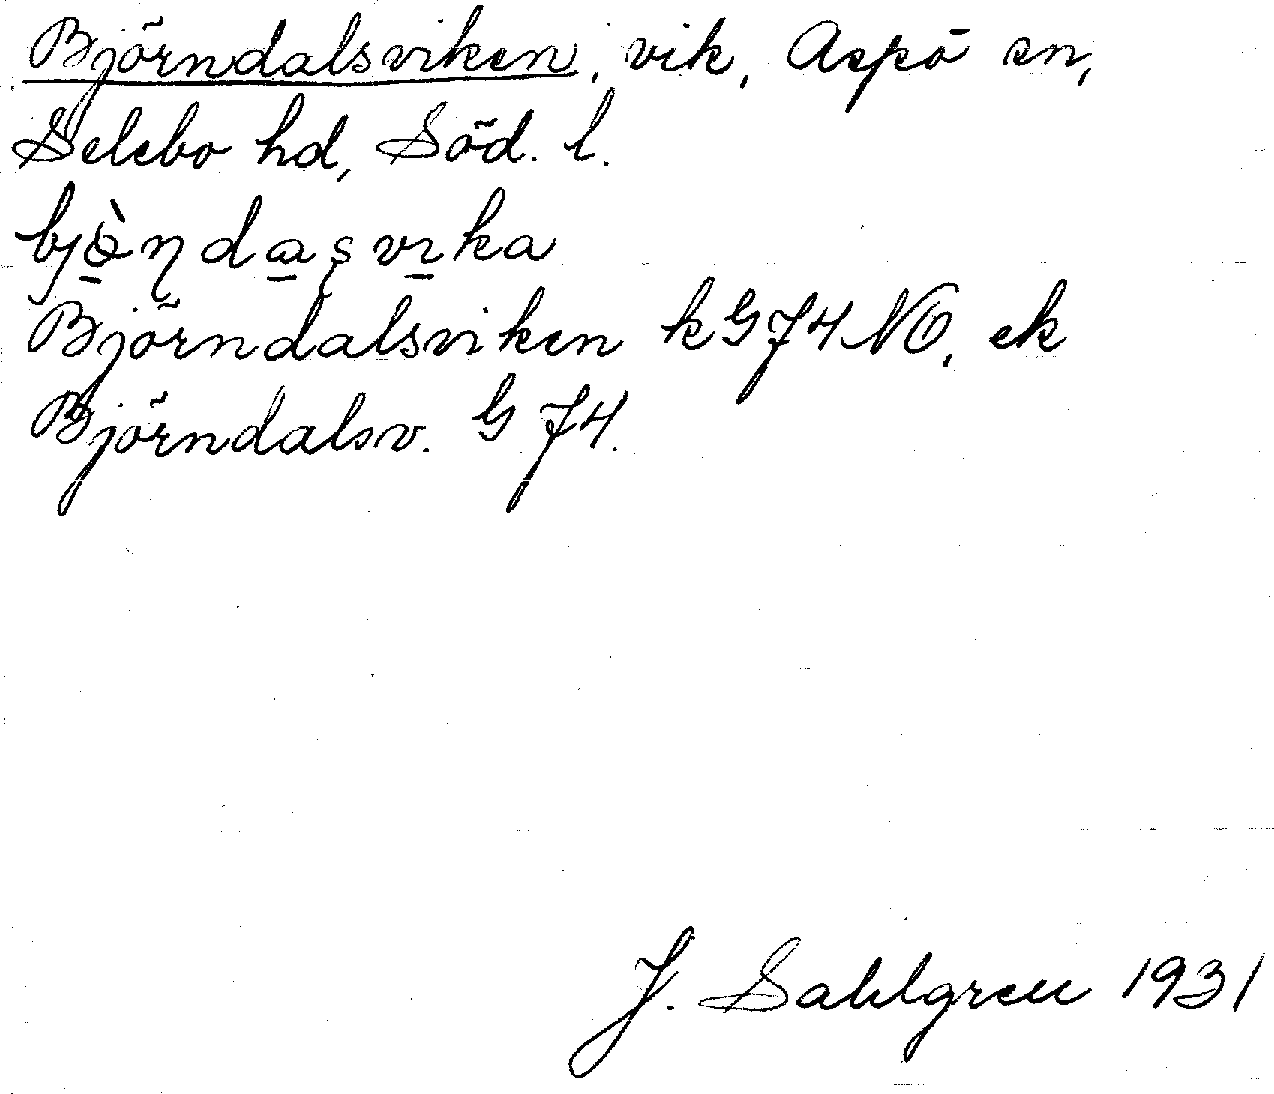 Björndalsviken, vik, Aspö sn,
Selebo hd, Söd. l.
Björndalsviken k G 74 NO, ek
Björndalsv. G 74.
J. Sahlgren 1931